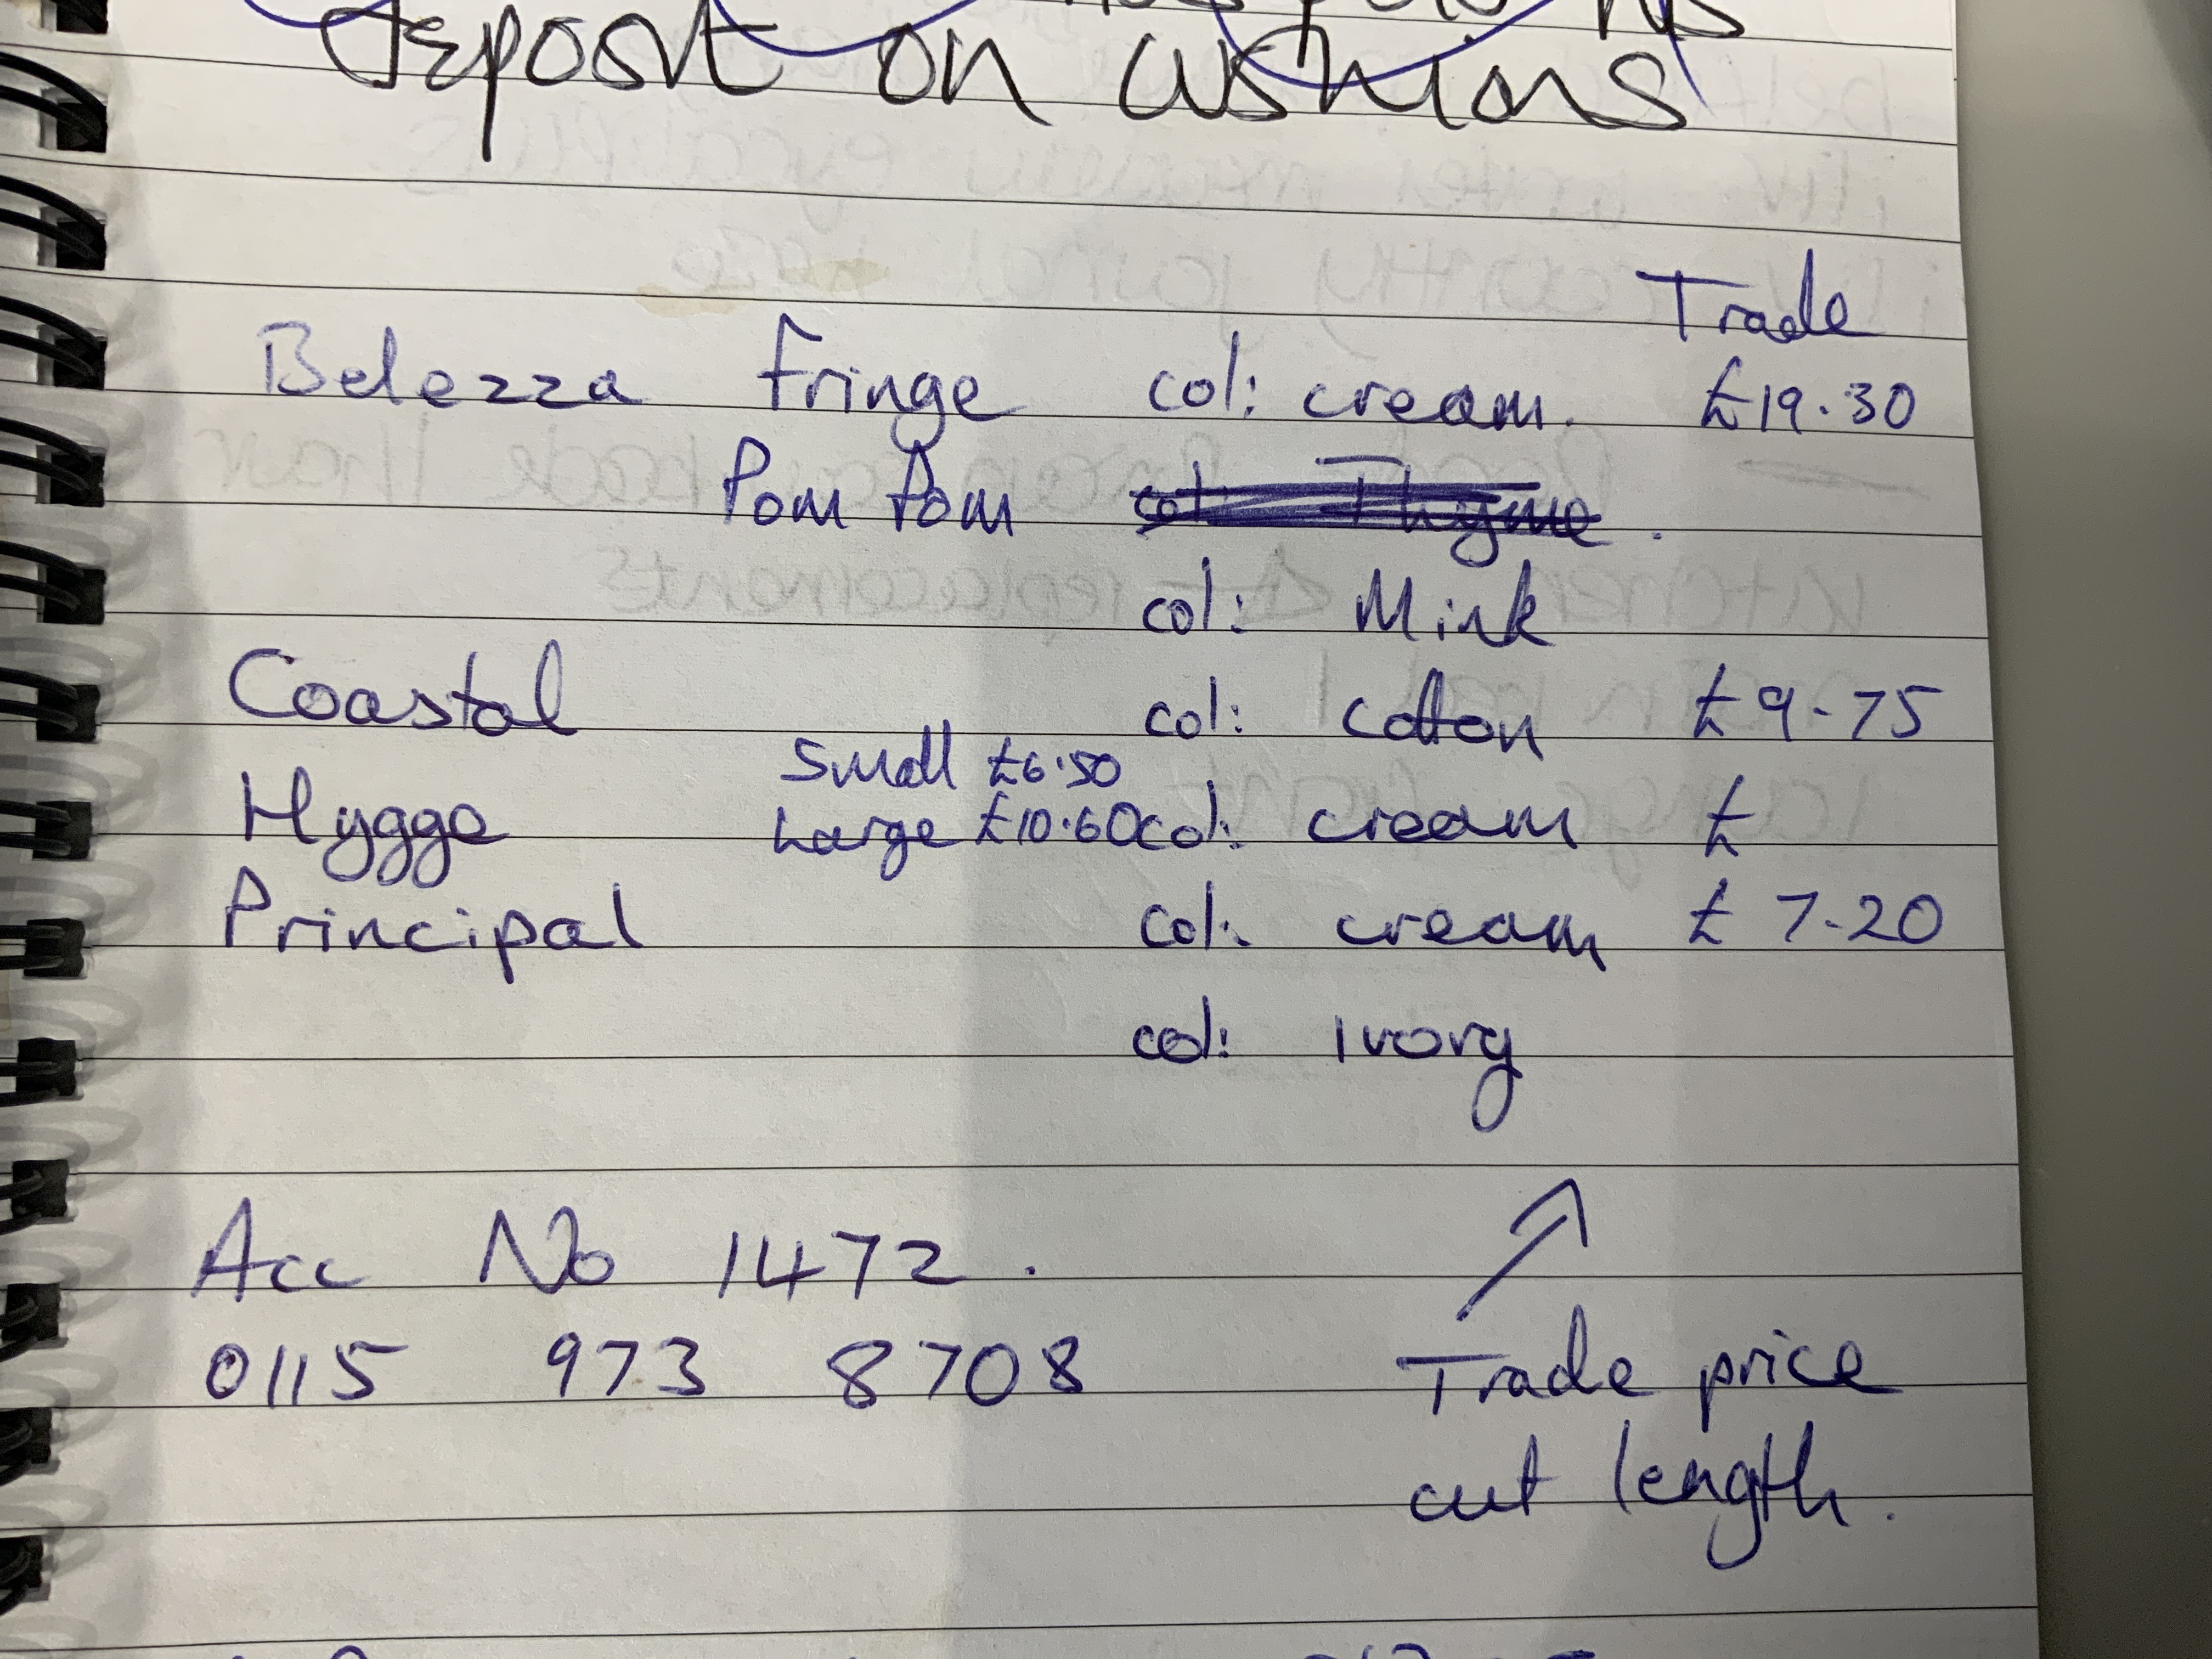 deposit on cushions
Trade
Belezza Fringe col: cream. £19.30
Pom Pom col: Thyme.
col: Mink
Coastal col: cotton £9-75
Small £6.50
Hygge Large £10.60 col: cream £
Principal col: cream £7-20
col: Ivory
Acc No 1472.
0115 973 8708
Trade price
cut length.